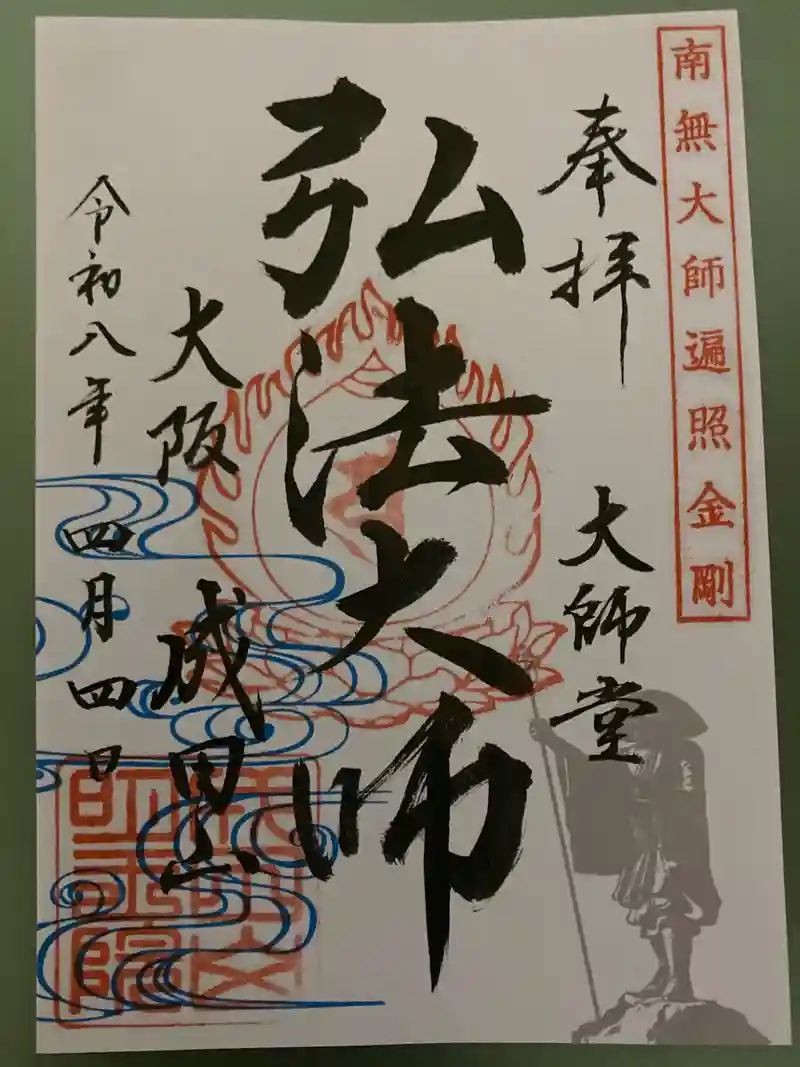 南無大師遍照金剛
奉拝 大師堂
弘法大師
大阪 成田山
令和八年四月四日
明王院